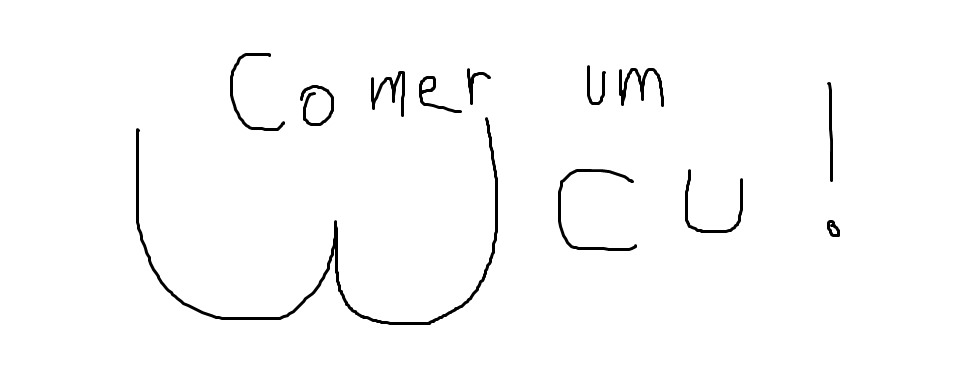 Comer um
CU!